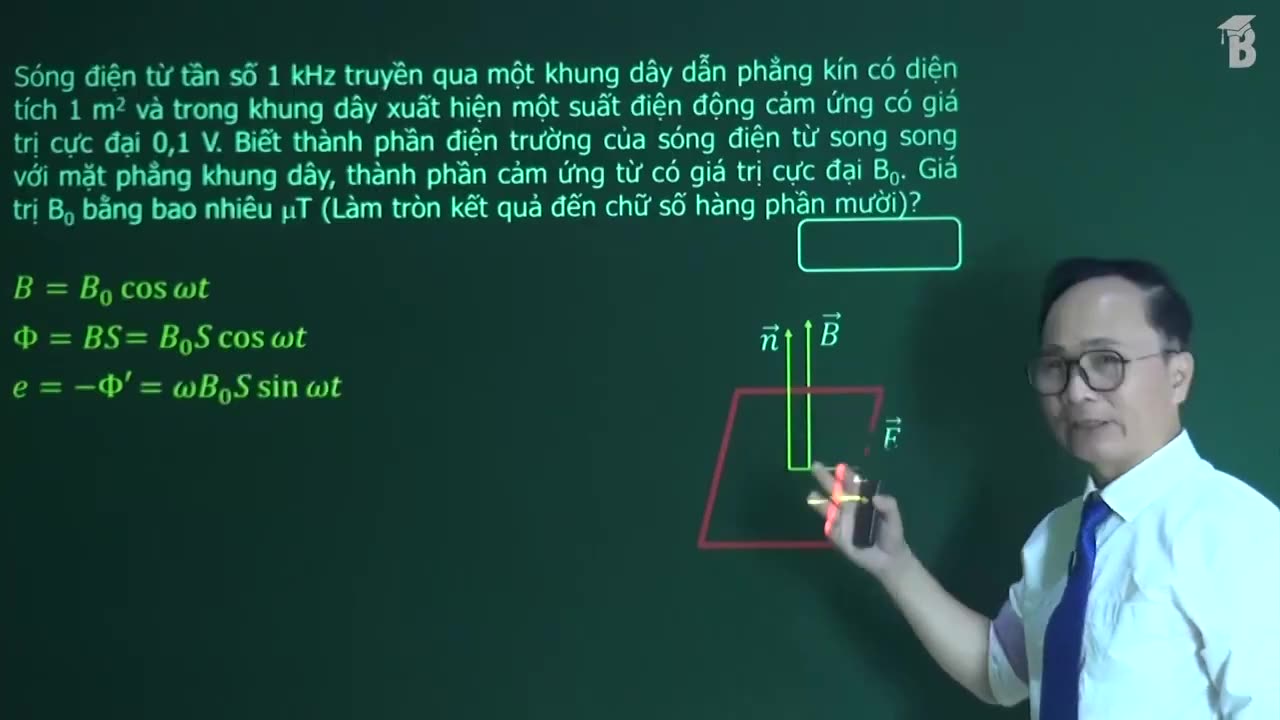 Sóng điện từ tần số 1 kHz truyền qua một khung dây dẫn phẳng kín có diện
tích 1 m² và trong khung dây xuất hiện một suất điện động cảm ứng có giá
trị cực đại 0,1 V. Biết thành phần điện trường của sóng điện từ song song
với mặt phẳng khung dây, thành phần cảm ứng từ có giá trị cực đại B₀. Giá
trị B₀ bằng bao nhiêu μT (Làm tròn kết quả đến chữ số hàng phần mười)?
B = B₀ cos ωt
Φ = BS= B₀S cos ωt
e = −Φ′ = ωB₀S sin ωt
n⃗
B⃗
E⃗
B